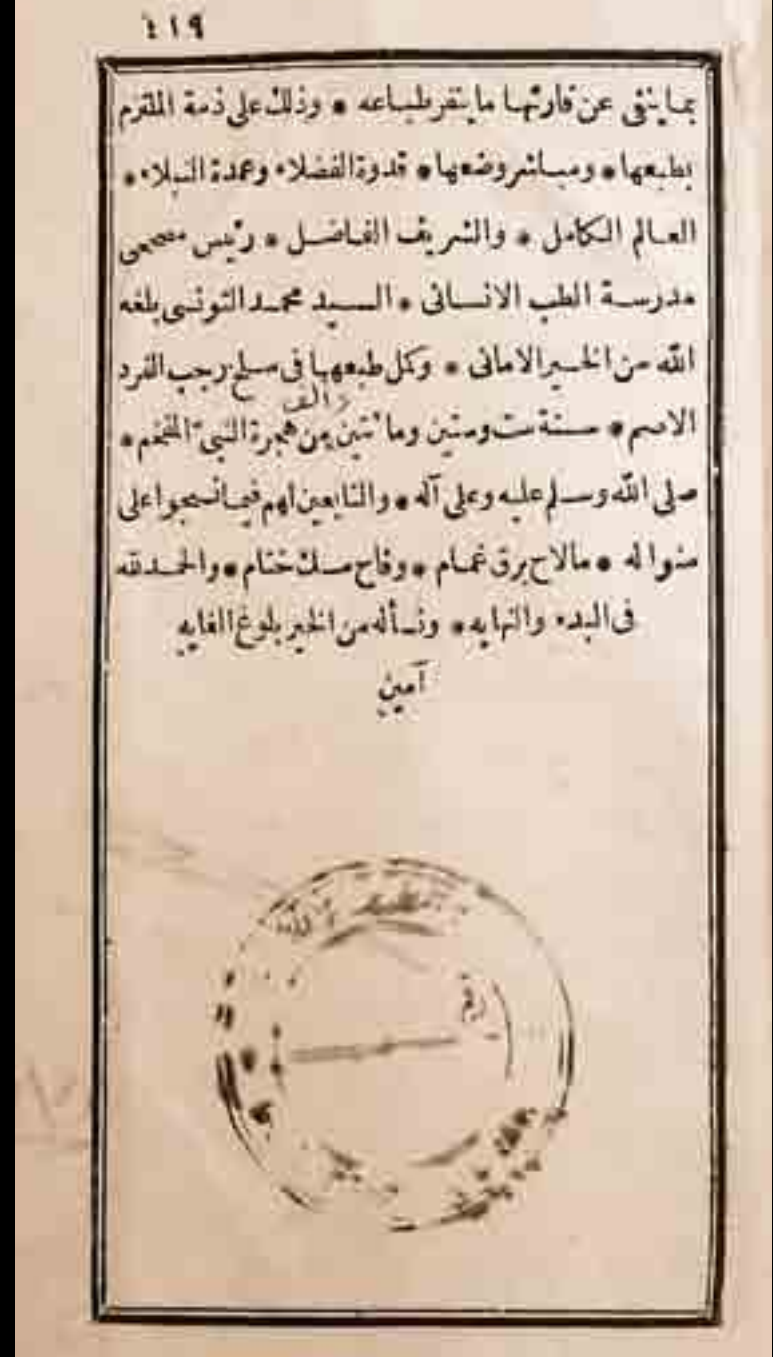 ٤١٩
بما ينفى عن قارئها ما ينفر طباعه * وذلك على ذمة الملتزم
بطبعها * ومباشر وضعها * قدوة الفضلاء وعمدة النبلاء *
العالم الكامل * والشريف الفاضل * رئيس مصححى
مدرسة الطب الانسانى * السيد محمد التونسى بلغه
الله من الخير الامانى * وكمل طبعها فى سلخ رجب الفرد
الاصم * سنة ست وستين ومائتين والف من هجرة النبى المفخم *
صلى الله وسلم عليه وعلى آله * والتابعين لهم فيما نسجوا على
منواله * مالاح برق غمام * وفاح مسك ختام * والحمد لله
فى البدء والنهايه * ونسأله من الخير بلوغ الغايه
آمين
رقم